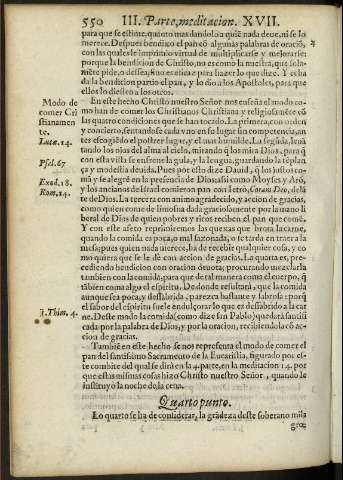 550 III. Parte, meditacion. XVII.
para que se estime, quãto mas dandolo a quiẽ nada deue, ni se lo
merece. Despues bendixo el pan cõ algunas palabras de oraciõ,
con las quales le imprimio virtud de multiplicarse y mejorarse:
porque la bendicion de Christo, no es como la nuestra, que sola-
mẽte pide, o dessea, sino es eficaz para hazer lo que dize. Y echa
da la bendicion partio el pan, y lo dio a los Apostoles, para que
ellos lo diessen a los otros.
En este hecho Christo nuestro Señor nos enseña el modo co-
mo han de comer los Christianos Christiana y religiosamẽte cõ
las quatro condiciones que se han tocado. La primera, con orden
y concierto, sentandose cada vno en su lugar sin competencia, an
tes escogiẽdo el postrer lugar, y el mas humilde. La segũda, leuã
tando los ojos del alma al cielo, mirando q̃ los mira Dios, para q̃
con esta vista se enfrene la gula, y la lengua, guardando la tẽplan
ça y modestia deuida. Pues por esso dize Dauid, q̃ los justos co-
mã y se alegrẽ en la presencia de Dios: assi como Moyses y Arõ,
y los ancianos de Israel comieron pan con Ietrò, Coram Deo, delã
te de Dios. La tercera con animo agradecido, y accion de gracias,
como quien come de limosna dada graciosamente por la mano li
beral de Dios de quien pobres y ricos reciben el pan que comẽ.
Y con este afeto reprimiremos las quexas que brota la carne,
quando la comida es poca, o mal sazonada, o se tarda en traer a la
mesa: pues quien nada merece, ha de recebir qualquier cosa, y co-
mo quiera que se le dè con accion de gracias. La quarta es, pre-
cediendo bendicion con oracion deuota; procurando mezclarla
tambien con la comida, para que de tal manera coma el cuerpo, q̃
tãbien coma algo el espiritu. De donde resultarà, que la comida
aunque sea poca, y dessabrida, parezca bastante y sabrosa: porq̃
el sabor del espiritu suele endulçorar lo que es dessabrido a la car
ne. Deste modo la comida (como dize san Pablo) quedarà santifi
cada por la palabra de Dios, y por la oracion, recibiendola cõ ac-
cion de gracias.
Tambiẽ en este hecho se nos representa el modo de comer el
pan del santissimo Sacramento de la Eucaristia, figurado por es-
te combite del qual se dirà en la 4. parte, en la meditacion 14. por
que estas mismas cosas hizo Christo nuestro Señor, quando le
instituyò la noche de la cena.
Quarto punto.
Lo quarto se ha de considerar, la grãdeza deste soberano mila
gro:
Modo de
comer Cri
stianamen
te.
Lucæ. 14.
Psal. 67
Exod. 18.
Rom. 14.
1. Thim. 4.